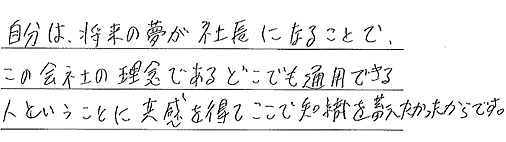 自分は、将来の夢が社長になることで、
この会社の理念であるどこでも通用できる
人ということに共感を得てここで知識を蓄えたかったからです。